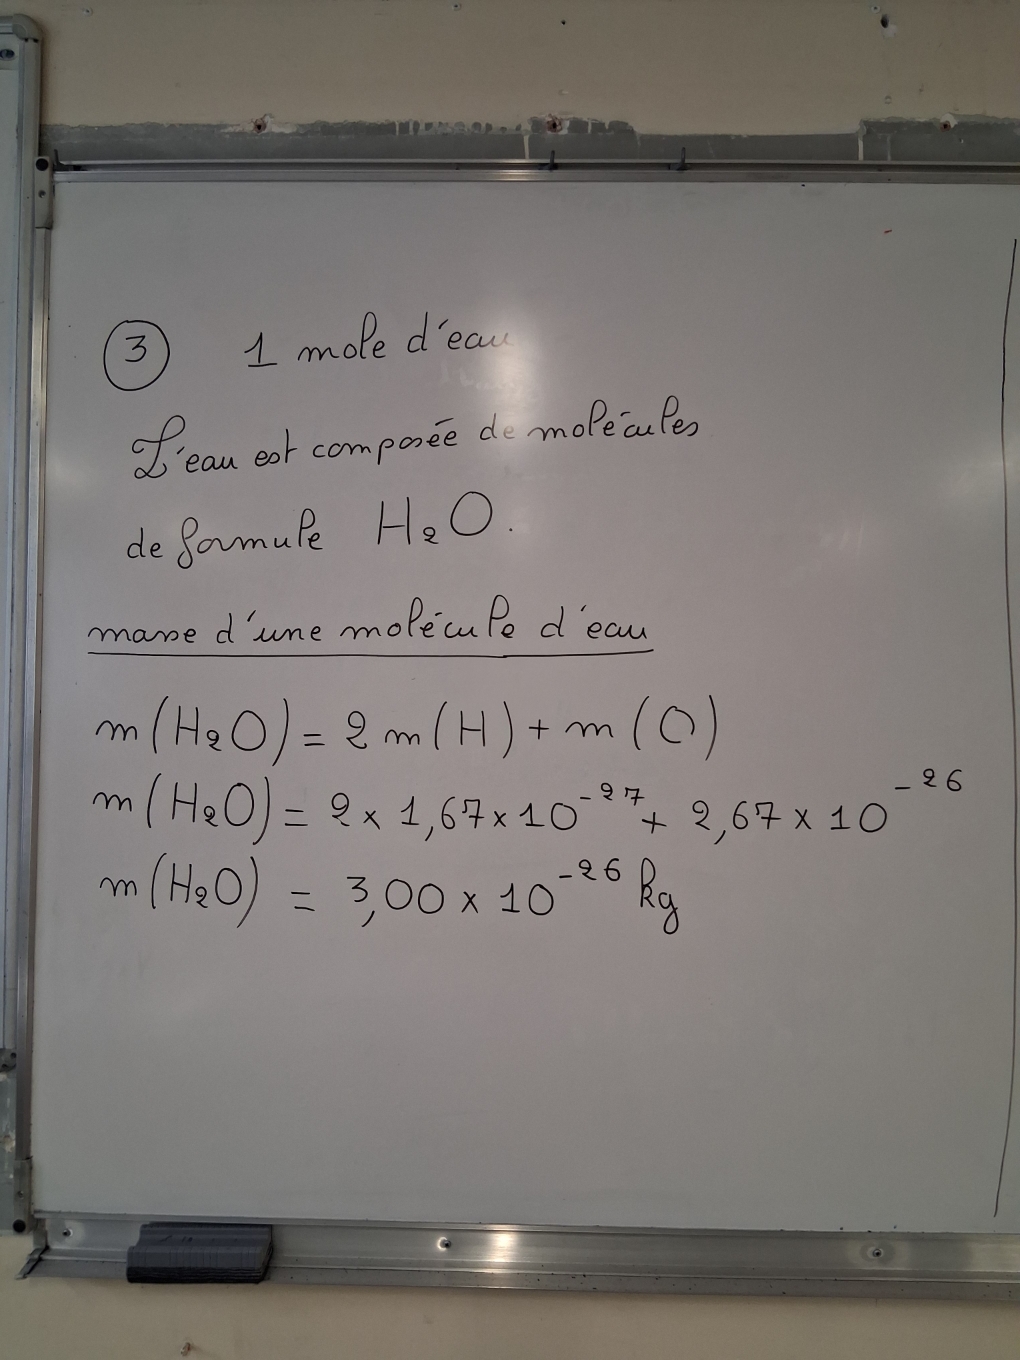 3 1 mole d'eau
L'eau est composée de molécules
de formule H₂O.
masse d'une molécule d'eau
m(H₂O) = 2 m(H) + m(O)
m(H₂O) = 2 x 1,67 x 10⁻²⁷ + 2,67 x 10⁻²⁶
m(H₂O) = 3,00 x 10⁻²⁶ kg